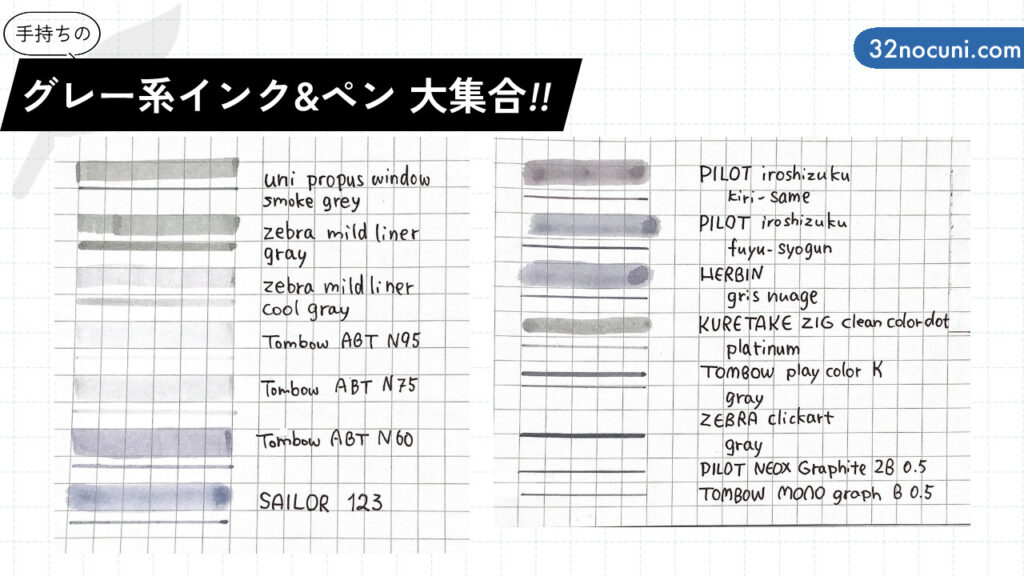 手持ちの
グレー系インク&ペン 大集合!!
32nocuni.com
uni propus window
smoke grey
zebra mild liner
gray
zebra mild liner
cool gray
Tombow ABT N95
Tombow ABT N75
Tombow ABT N60
SAILOR 123
PILOT iroshizuku
kiri-same
PILOT iroshizuku
fuyu-syogun
HERBIN
gris nuage
KURETAKE ZIG clean color dot
platinum
TOMBOW play color K
gray
ZEBRA clickart
gray
PILOT NEOX Graphite 2B 0.5
TOMBOW MONO graph B 0.5